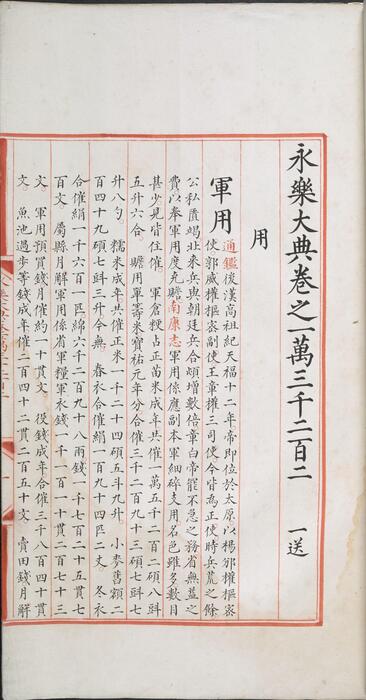 永樂大典卷之一萬三千二百二　一送
用
軍用
通鑑後漢高祖紀天福十二年帝即位於太原以楊邠權樞密
使郭威權樞密副使王章權三司使今皆為正使時兵荒之餘
公私匱竭北來兵與朝廷兵合頓增數倍章白帝罷不急之務省無益之
費以奉軍用度克贍南康志軍用係應副本軍細碎支用名色雖多數目
甚少見皆住催　軍倉粳占正苗米咸年共催一萬五千二百二碩八㪷
五升六合　贍用單籌米寶祐元年分合催三千二百九十三碩七㪷七
升八勺　糯米咸年共催正米一千二十四碩五斗九升　小麥舊額二
百四十九碩七㪷三升今無　春衣合催絹一百九十四疋二丈　冬衣
合催絹一千六百一疋綿六千二百九十八兩錢一千七百二十五貫七
百文　屬縣月解軍用係省軍糧軍衣錢一千一百一十貫二百七十三
文　軍用預買錢月催約一十貫文　役錢咸年合催三千八百四十貫
文　魚池過步等錢咸年催二百四十二貫二百五十文　賣田錢月解